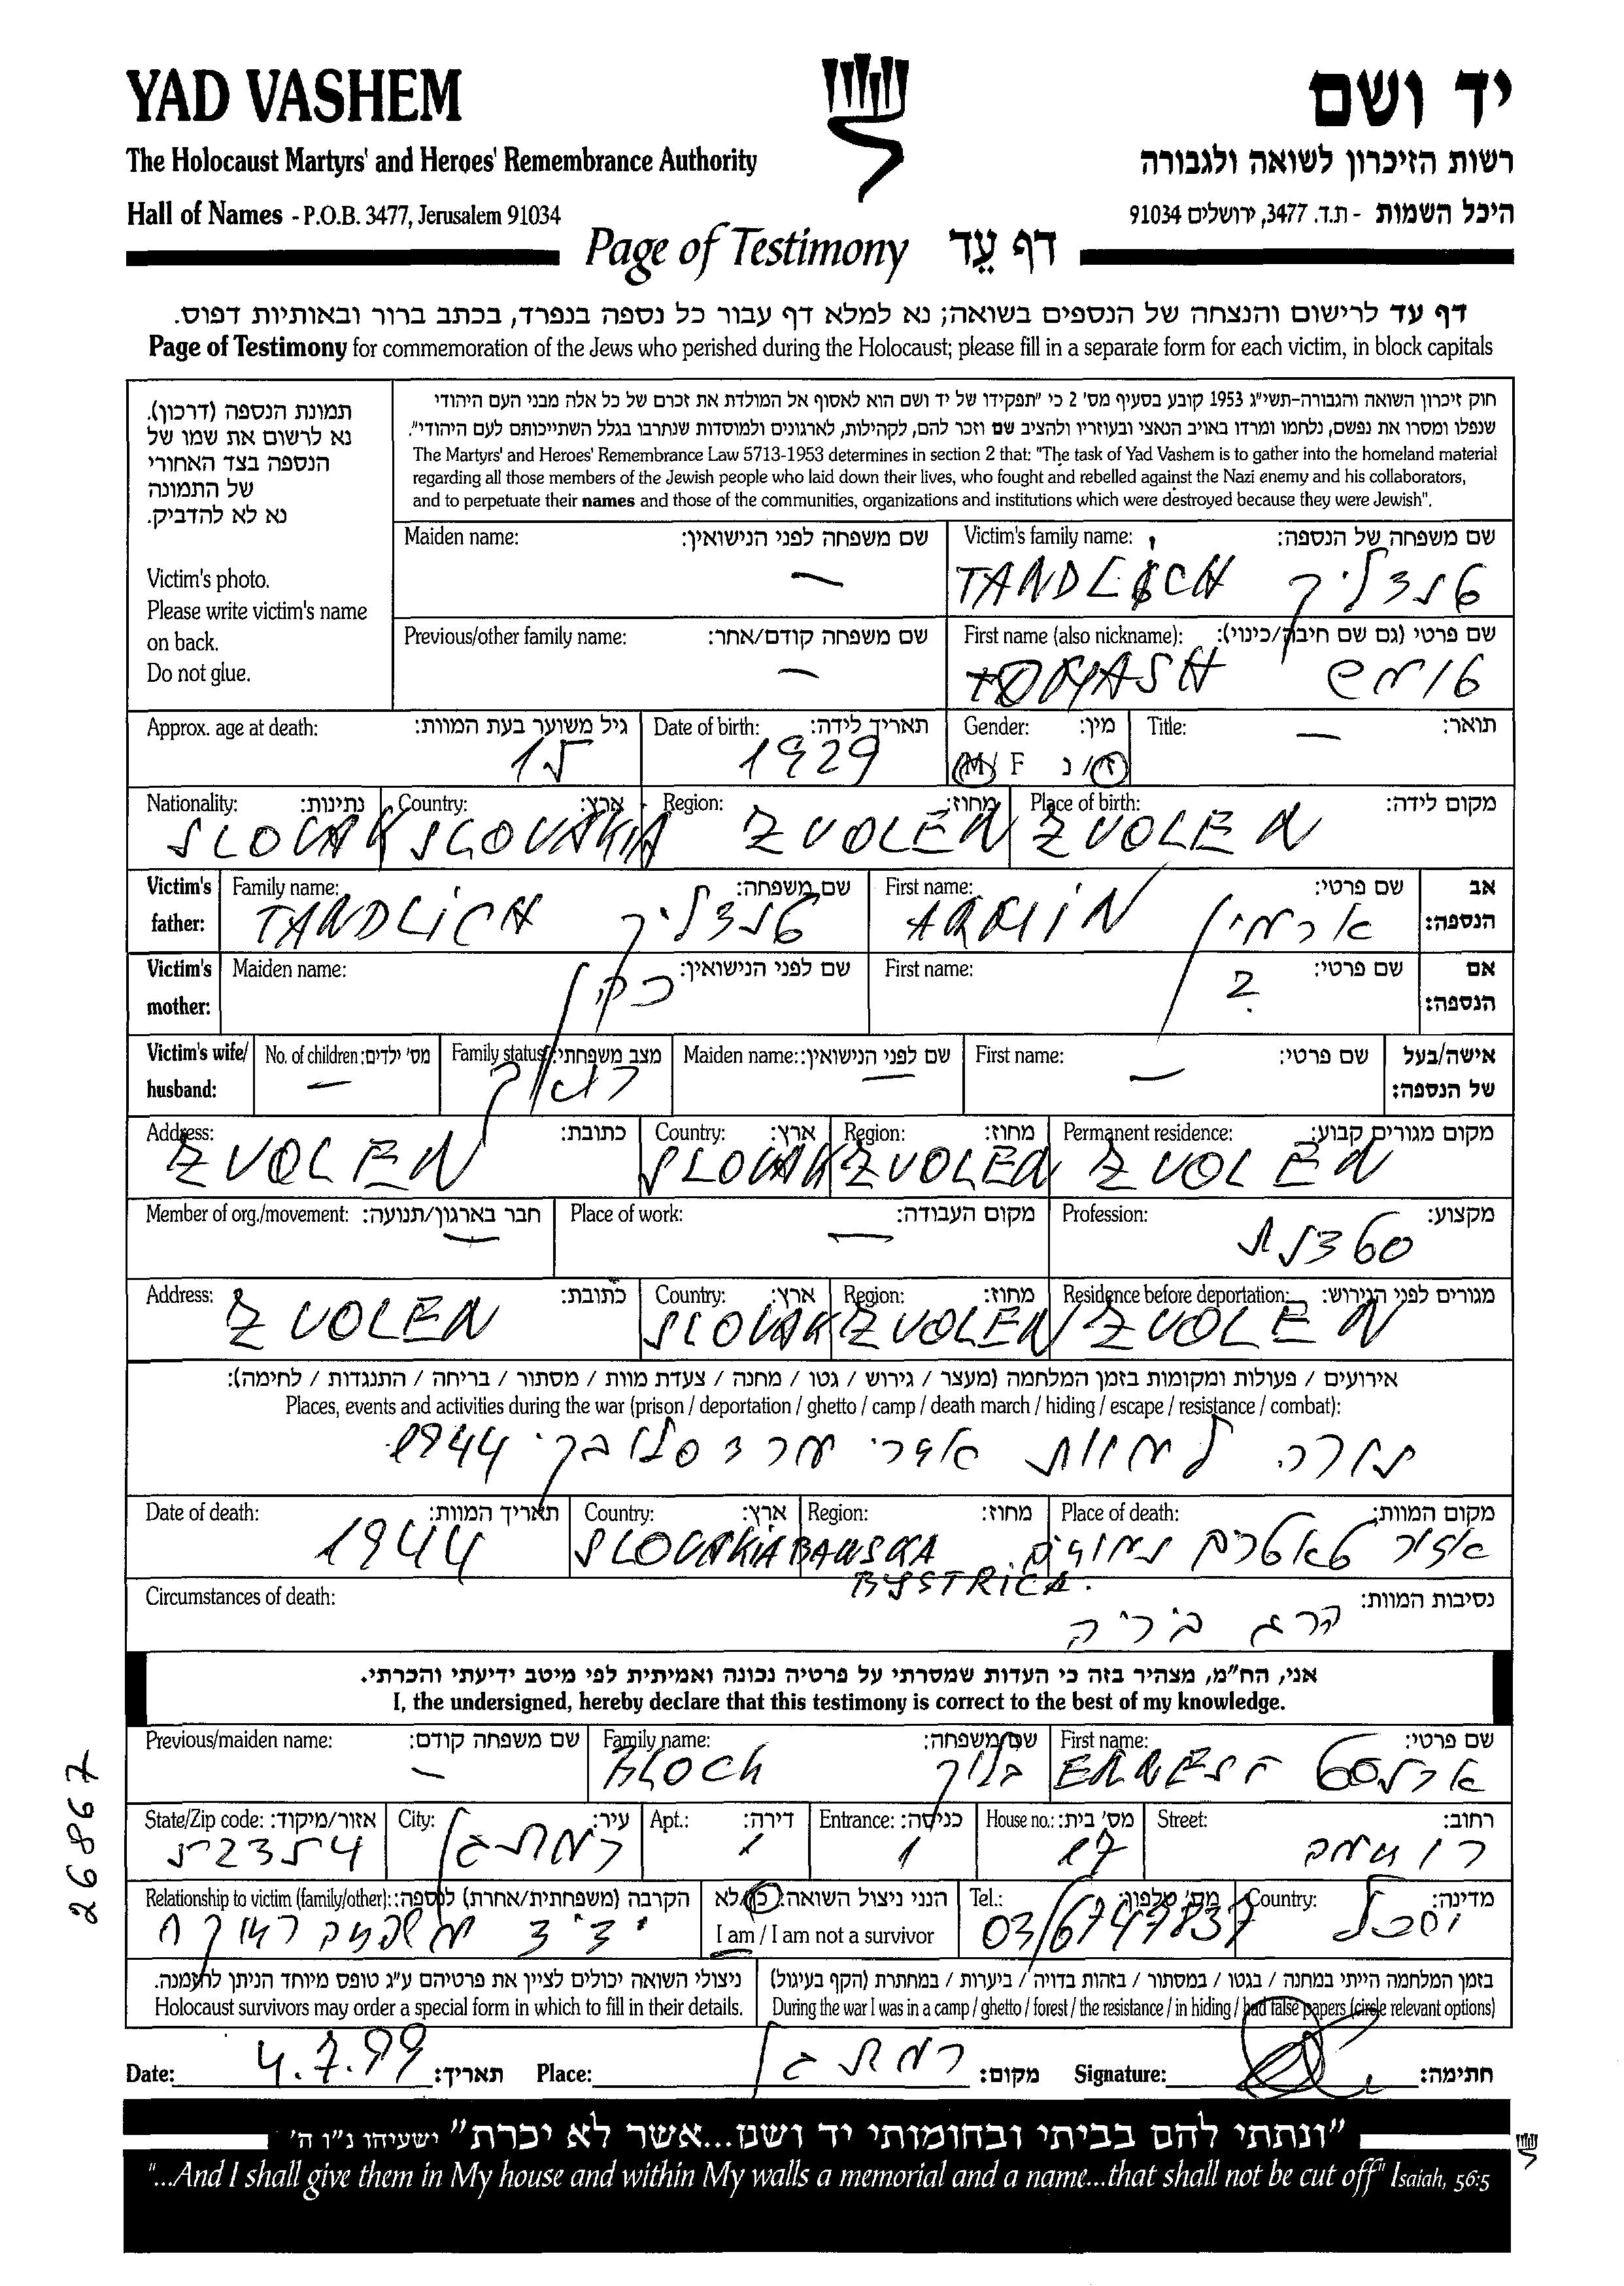 YAD VASHEM
יד ושם
The Holocaust Martyrs' and Heroes' Remembrance Authority
רשות הזיכרון לשואה ולגבורה
Hall of Names - P.O.B. 3477, Jerusalem 91034
היכל השמות - ת.ד. 3477, ירושלים 91034
Page of Testimony דף עֵד
דף עד לרישום והנצחה של הנספים בשואה; נא למלא דף עבור כל נספה בנפרד, בכתב ברור ובאותיות דפוס.
Page of Testimony for commemoration of the Jews who perished during the Holocaust; please fill in a separate form for each victim, in block capitals
תמונת הנספה (דרכון).
נא לרשום את שמו של
הנספה בצד האחורי
של התמונה
נא לא להדביק.
Victim's photo.
Please write victim's name
on back.
Do not glue.
חוק זיכרון השואה והגבורה-תשי"ג 1953 קובע בסעיף מס' 2 כי "תפקידו של יד ושם הוא לאסוף אל המולדת את זכרם של כל אלה מבני העם היהודי
שנפלו ומסרו את נפשם, נלחמו ומרדו באויב הנאצי ובעוזריו ולהציב שם וזכר להם, לקהילות, לארגונים ולמוסדות שנחרבו בגלל השתייכותם לעם היהודי".
The Martyrs' and Heroes' Remembrance Law 5713-1953 determines in section 2 that: "The task of Yad Vashem is to gather into the homeland material
regarding all those members of the Jewish people who laid down their lives, who fought and rebelled against the Nazi enemy and his collaborators,
and to perpetuate their names and those of the communities, organizations and institutions which were destroyed because they were Jewish".
Maiden name: שם משפחה לפני הנישואין: Victim's family name: שם משפחה של הנספה:
— TANDLICH טנדליך
Previous/other family name: שם משפחה קודם/אחר: First name (also nickname): שם פרטי (גם שם חיבה/כינוי):
— TOMASH טומש
Approx. age at death: גיל משוער בעת המוות: Date of birth: תאריך לידה: Gender: מין: Title: תואר:
15 1929 M / F ז / נ —
Nationality: נתינות: Country: ארץ: Region: מחוז: Place of birth: מקום לידה:
SLOVAK SLOVAKIA ZVOLEN ZVOLEN
Victim's father: Family name: שם משפחה: First name: שם פרטי: אב הנספה:
TANDLiCH טנדליך ARMiN ארמין
Victim's mother: Maiden name: שם לפני הנישואין: First name: שם פרטי: אם הנספה:
?
Victim's wife/ husband: No. of children: מס' ילדים: Family status: מצב משפחתי: Maiden name: שם לפני הנישואין: First name: שם פרטי: אישה/בעל של הנספה:
— רווק — —
Address: כתובת: Country: ארץ: Region: מחוז: Permanent residence: מקום מגורים קבוע:
ZVOLEN SLOVAK ZVOLEN ZVOLEN
Member of org./movement: חבר בארגון/תנועה: Place of work: מקום העבודה: Profession: מקצוע:
— — סטדנת
Address: כתובת: Country: ארץ: Region: מחוז: Residence before deportation: מגורים לפני הגירוש:
ZVOLEN SLOVAK ZVOLEN ZVOLEN
אירועים / פעולות ומקומות בזמן המלחמה (מעצר / גירוש / גטו / מחנה / צעדת מוות / מסתור / בריחה / התנגדות / לחימה):
Places, events and activities during the war (prison / deportation / ghetto / camp / death march / hiding / escape / resistance / combat):
נורה למוות אחרי מרד סלובקי 1944
Date of death: תאריך המוות: Country: ארץ: Region: מחוז: Place of death: מקום המוות:
1944 SLOVAKiA BANSKA BYSTRiCA. אזור
Circumstances of death: נסיבות המוות:
הרג ביריה
אני, הח"מ, מצהיר בזה כי העדות שמסרתי על פרטיה נכונה ואמיתית לפי מיטב ידיעתי והכרתי.
I, the undersigned, hereby declare that this testimony is correct to the best of my knowledge.
Previous/maiden name: שם משפחה קודם: Family name: שם משפחה: First name: שם פרטי:
— BLOCH בלוך ERNEST ארנסט
State/Zip code: אזור/מיקוד: City: עיר: Apt.: דירה: Entrance: כניסה: House no.: מס' בית: Street: רחוב:
52354 רמת גן 1 1 17
Relationship to victim (family/other): הקרבה (משפחתית/אחרת) לנספה: הנני ניצול השואה: כן/לא Tel.: מס' טלפון: Country: מדינה:
ידיד משפחה רחוקה I am / I am not a survivor 03/6747837 ישראל
ניצולי השואה יכולים לציין את פרטיהם ע"ג טופס מיוחד הניתן להזמנה.
Holocaust survivors may order a special form in which to fill in their details.
בזמן המלחמה הייתי במחנה / בגטו / במסתור / בזהות בדויה / ביערות / במחתרת (הקף בעיגול)
During the war I was in a camp / ghetto / forest / the resistance / in hiding / had false papers (circle relevant options)
Date: 4.7.99 תאריך: Place: רמת גן מקום: Signature: חתימה:
26867
"ונתתי להם בביתי ובחומותי יד ושם...אשר לא יכרת" ישעיהו נ"ו ה'
"...And I shall give them in My house and within My walls a memorial and a name...that shall not be cut off" Isaiah, 56:5